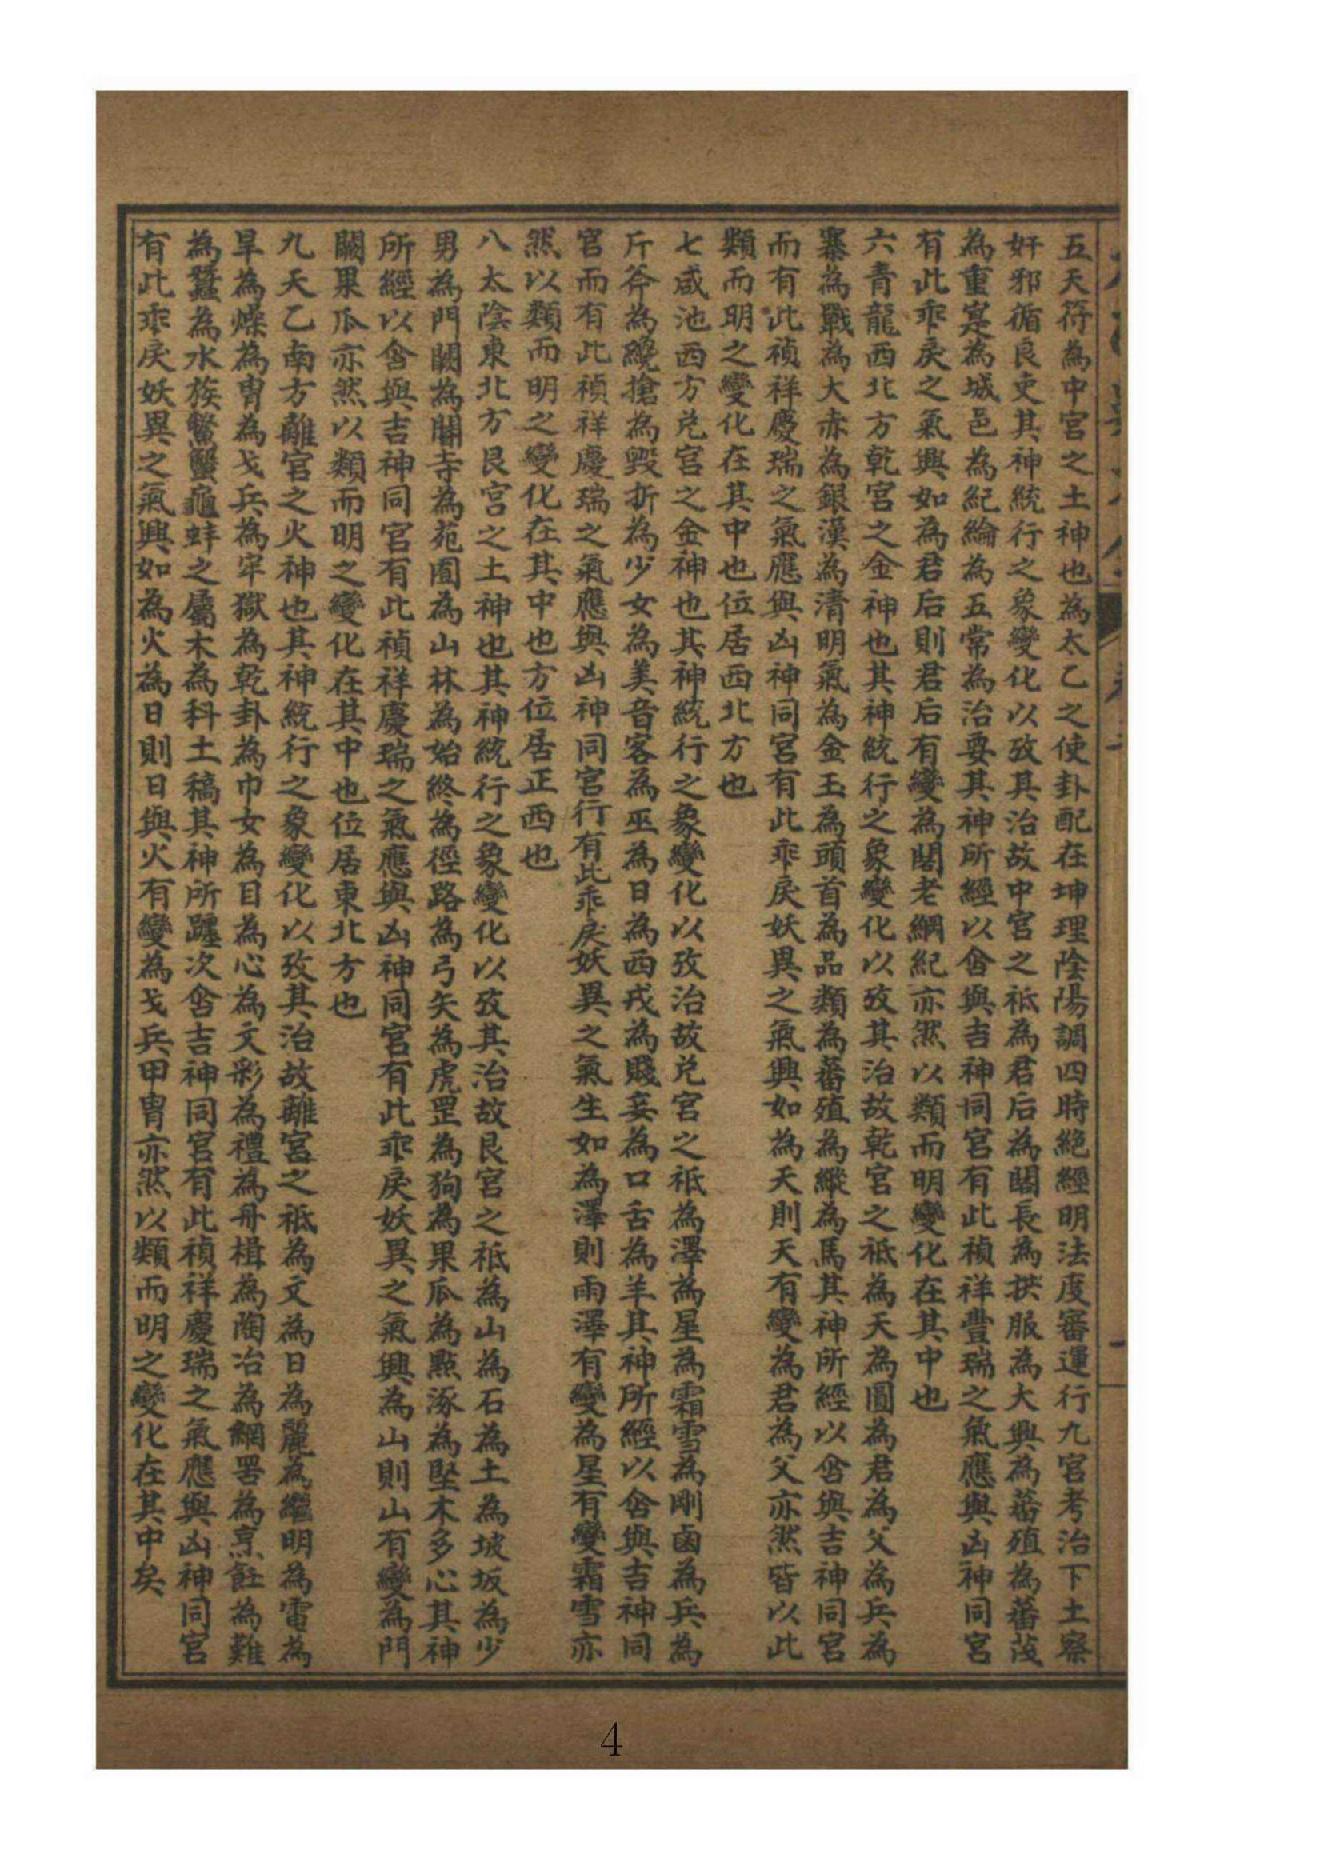 五天符為中宮之土神也為太乙之使卦配在坤理陰陽調四時絕經明法度審運行九宮考治下土察
奸邪循良吏其神統行之象變化以攷其治故中宮之祗為君后為閣長為拱服為大輿為蕃殖為蕃茂
為重寔為城邑為紀綸為五常為治要其神所經以會與吉神同宮有此禎祥豐瑞之氣應與凶神同宮
有此乖戾之氣興如為君后則君后有變為閣老綱紀亦然以類而明變化在其中也
六青龍西北方乾宮之金神也其神統行之象變化以攷其治故乾宮之祗為天為圓為君為父為兵為
寨為戰為大赤為銀漢為清明氣為金玉為頭首為品類為蕃殖為縱為馬其神所經以會與吉神同宮
而有此禎祥慶瑞之氣應與凶神同宮有此乖戾妖異之氣興如為天則天有變為君為父亦然皆以此
類而明之變化在其中也位居西北方也
七咸池西方兌宮之金神也其神統行之象變化以攷治故兌宮之祗為澤為星為霜雪為剛鹵為兵為
斤斧為纔搶為毀折為少女為美音客為巫為日為西戎為賤妾為口舌為羊其神所經以會與吉神同
官而有此禎祥慶瑞之氣應與凶神同宮行有此乖戾妖異之氣生如為澤則雨澤有變為星有變霜雪亦
然以類而明之變化在其中也方位居正西也
八太陰東北方艮宮之土神也其神統行之象變化以攷其治故艮宮之祗為山為石為土為坡坂為少
男為門闕為閽寺為苑囿為山林為始終為徑路為弓矢為虎罡為狗為果瓜為點涿為堅木多心其神
所經以會與吉神同官有此禎祥慶瑞之氣應與凶神同官有此乖戾妖異之氣興為山則山有變為門
闕果瓜亦然以類而明之變化在其中也位居東北方也
九天乙南方離宮之火神也其神統行之象變化以攷其治故離宮之祗為文為日為麗為繼明為電為
旱為燥為胄為戈兵為牢獄為乾卦為巾女為目為心為文彩為禮為舟楫為陶冶為網罟為烹飪為難
為蠶為水族鱉蟹龜蚌之屬木為科土稿其神所躔次會吉神同官有此禎祥慶瑞之氣應與凶神同宮
有此乖戾妖異之氣興如為火為日則日與火有變為戈兵甲胄亦然以類而明之變化在其中矣
4